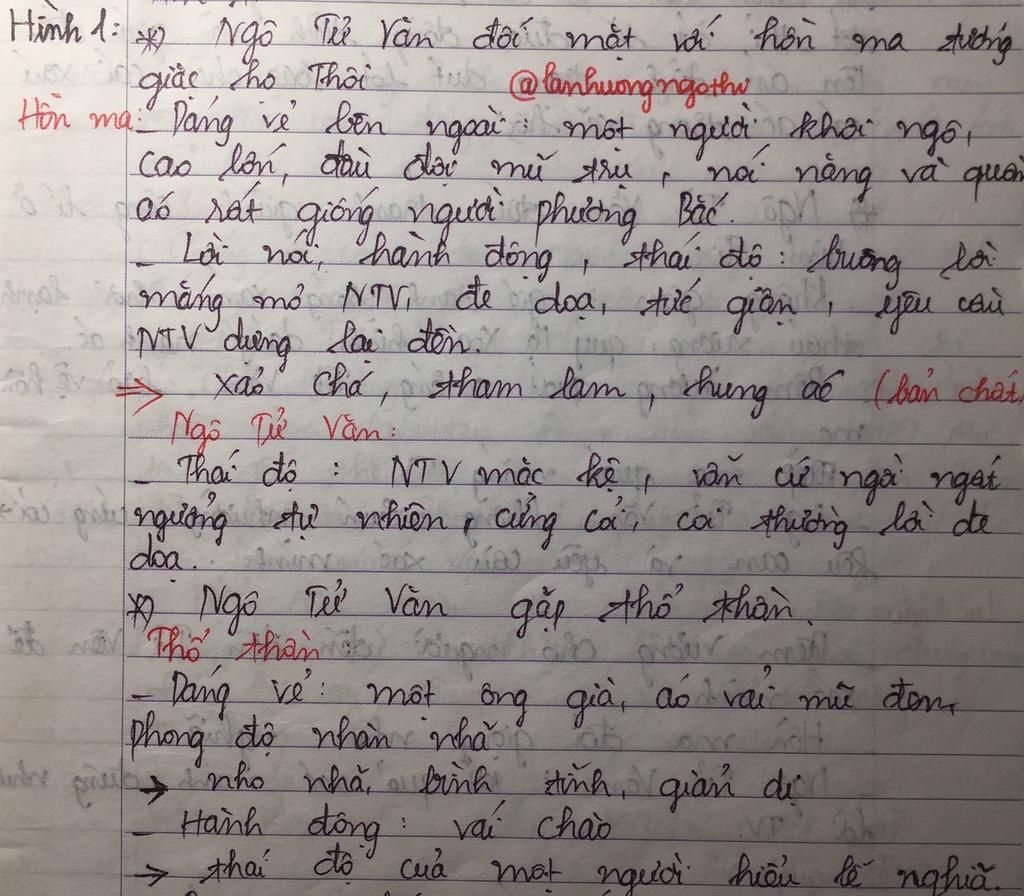 Hình 1: *) Ngô Tử Văn đối mặt với hồn ma tướng
giặc họ Thôi @lanhuongngothu
Hồn ma: - Dáng vẻ bên ngoài: một người khôi ngô,
cao lớn, đầu đội mũ trụ, nói năng và quần
áo rất giống người phương Bắc.
- Lời nói, hành động, thái độ: buông lời
mắng mỏ NTV, đe doạ, tức giận, yêu cầu
NTV dựng lại đền.
=> xảo chá, tham lam, hung ác (bản chất)
Ngô Tử Văn:
- Thái độ: NTV mặc kệ, vẫn cứ ngồi ngất
ngưởng tự nhiên, cứng cỏi, coi thường lời đe
doạ.
*) Ngô Tử Văn gặp thổ thần.
Thổ thần:
- Dáng vẻ: một ông già, áo vải mũ đen,
phong độ nhàn nhã
→ nho nhã, bình tĩnh, giản dị
- Hành động: vái chào
→ thái độ của một người hiểu lễ nghĩa.